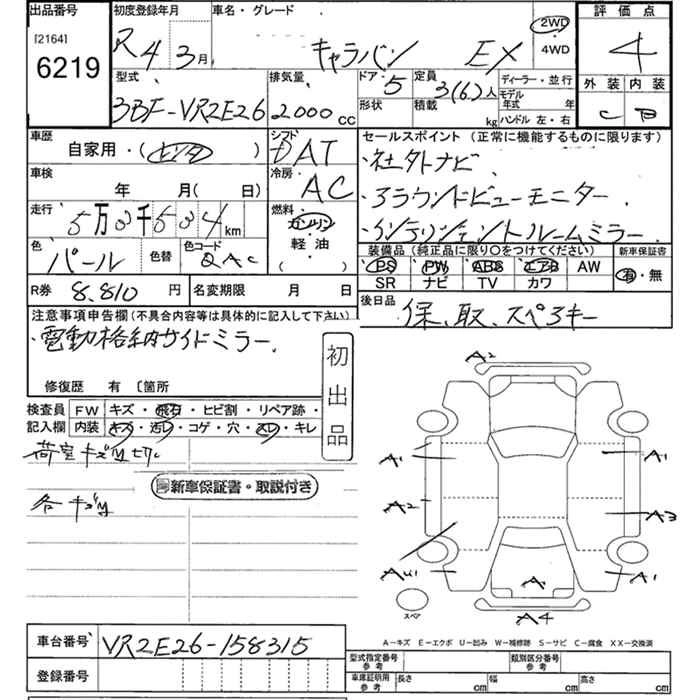 出品番号 初度登録年月 車名・グレード 評価点
[2164]
6219
R4 3月 キャラバン EX 2WD ・ 4WD 4
型式 排気量 ドア 定員 ディーラー・並行 外装 内装
3BF-VR2E26 2000cc 5 3(6)人 モデル年式 年 C B
形状 積載 kg ハンドル 左・右
車歴 シフト セールスポイント (正常に機能するものに限ります)
自家用・( ) DAT ・社外ナビ
車検 冷房 ・アラウンドビューモニター
年 月( 日) AC ・インテリジェントルームミラー
走行 燃料
5万3千534km ガソリン
軽・油
( )
色 色替 色コード 装備品(純正品に限り○をつけてください) 新車保証書
パール QAC PS PW ABS エアB AW 有・無
SR ナビ TV カワ
R券 8,810円 名変期限 月 日 後日品
保、取、スペアキー
注意事項申告欄(不具合内容等は具体的に記入して下さい)
・電動格納サイドミラー
初出品
修復歴 有 〔箇所
検査員 FW キズ・飛石・ヒビ割・リペア跡・
記入欄 内装 キズ・汚レ・コゲ・穴・スレ・キレ
荷室キズ凹切レ
新車保証書・取説付き
各キズ凹
A2
A1 A1
A2 A3
AU1 A A1
スペア A4
A-キズ E-エクボ U-凹み W-補修跡 S-サビ C-腐食 XX-交換済
車台番号 VR2E26-158315
型式指定番号 参考 類別区分番号 参考
登録番号
車庫証明用 参考 長さ cm 幅 cm 高さ cm